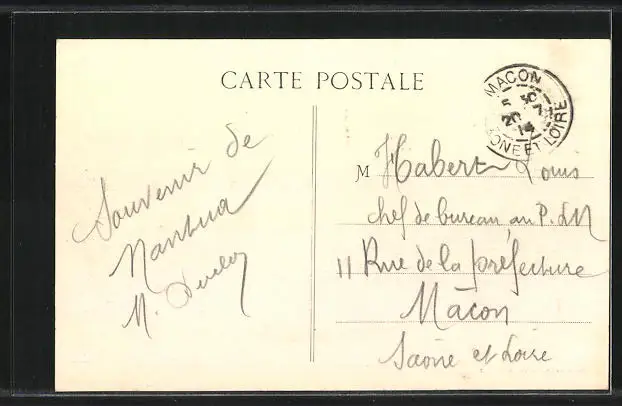 CARTE POSTALE
MACON
5 30
20 7
14
SAONE ET LOIRE
Souvenir de
Nantua
M.
M Habert Louis
chef de bureau au P.LM
11 Rue de la préfecture
Mâcon
Saône et Loire